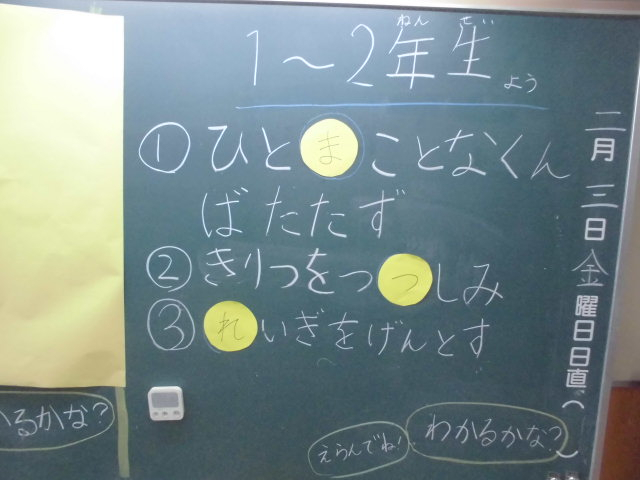 1～2年生よう
ねん せい
①ひとまことなくん
ばたたず
②きりつをつつしみ
③れいぎをげんとす
えらんでね!
わかるかな?
かるかな?
二月三日金曜日日直( )